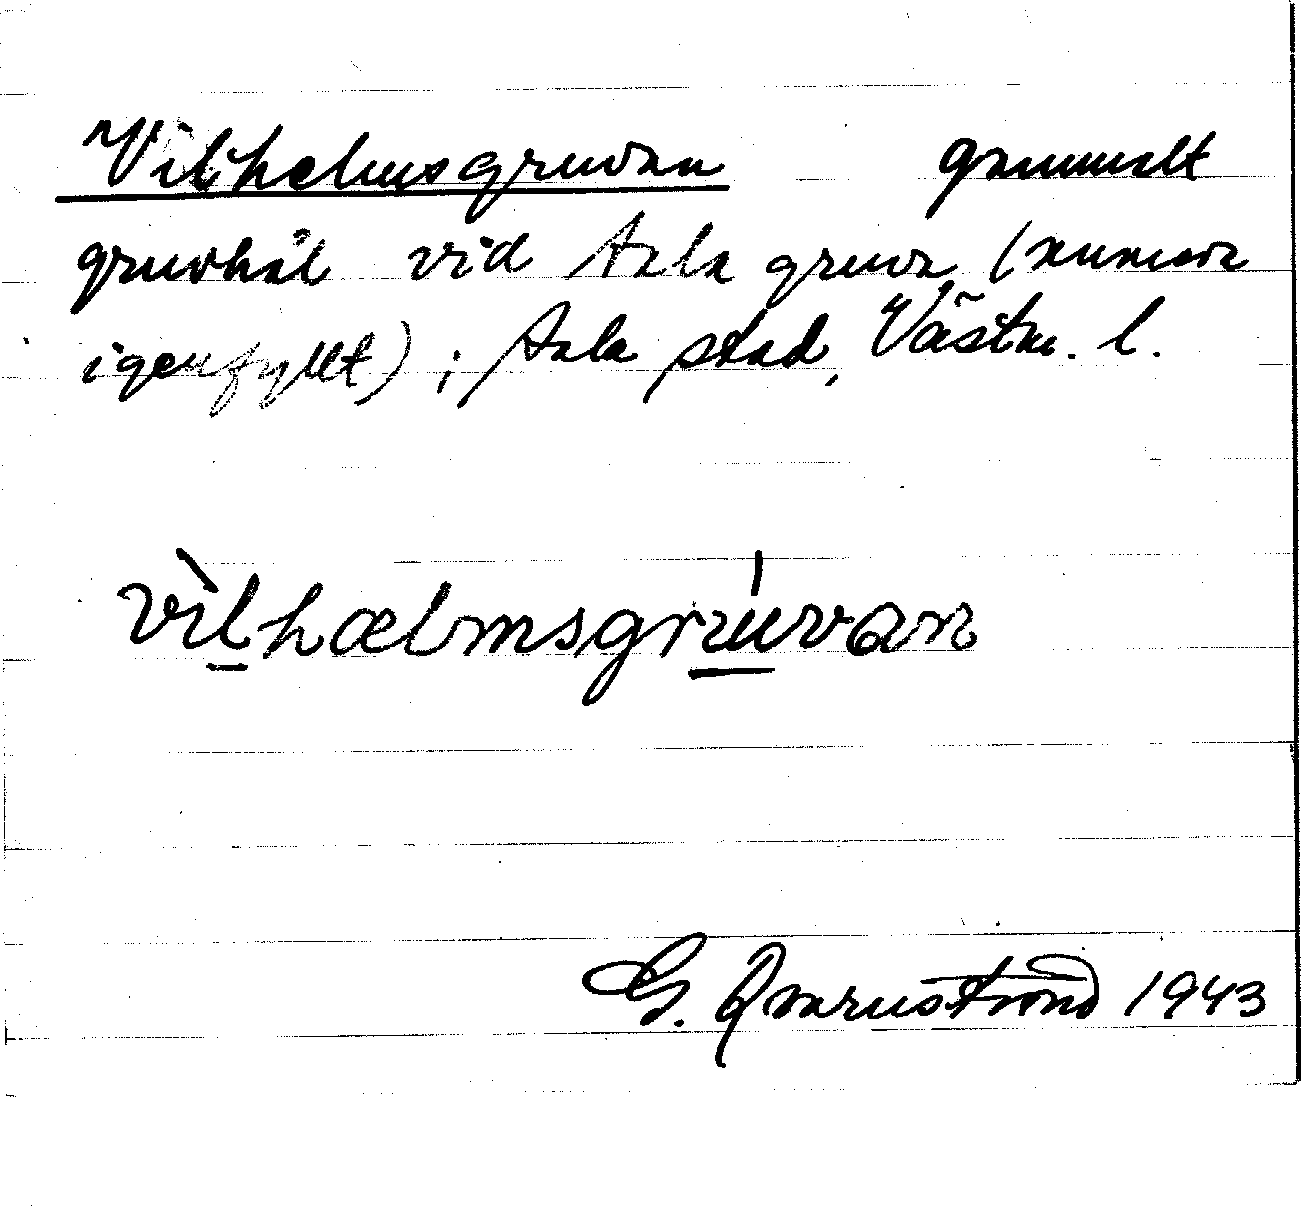 Vilhelmsgruvan gammalt
gruvhål vid Sala gruva (numera
igenfyllt); Sala stad, Västm. l.
vìlhælmsgrúvan
G. Qvarnström 1943